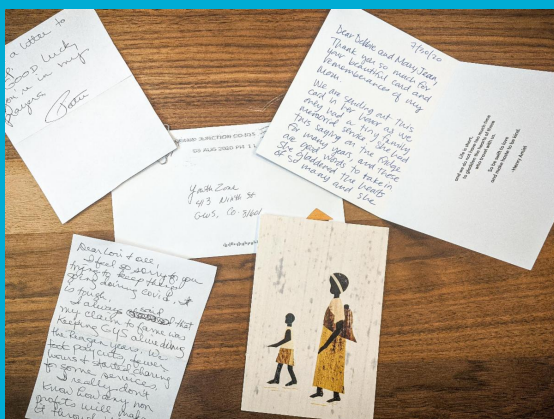 a letter to
Good luck
You're in my
prayers
GRAND JUNCTION CO 815
03 AUG 2020 PM 1
Youth Zone
413 Ninth St
GWS, Co 81601
7/20/20
Dear Debbie and Mary Jean,
Thank you so much for
your beautiful card and
remembrance of my
Mom
We are sending out this
card in her honor as we
only had a tiny family
memorial service. She had
this saying on the fridge
for many years, and these
are good words to take in
She gladdened the hearts
of so many and she
Life is short,
and we do not have too much time
to gladden the hearts of those
who travel with us.
So be swift to love
and make haste to be kind.
-Henry Amiel
Dear Lori & all,
I feel so sorry for you
trying to keep things
going during covid. It
is tough.
I always said that
my claim to fame was
keeping GYS alive during
the Reagan years. We
took pay cuts, fewer
hours & started charging
for some services.
I really don't
know how any non
profits will make
it through